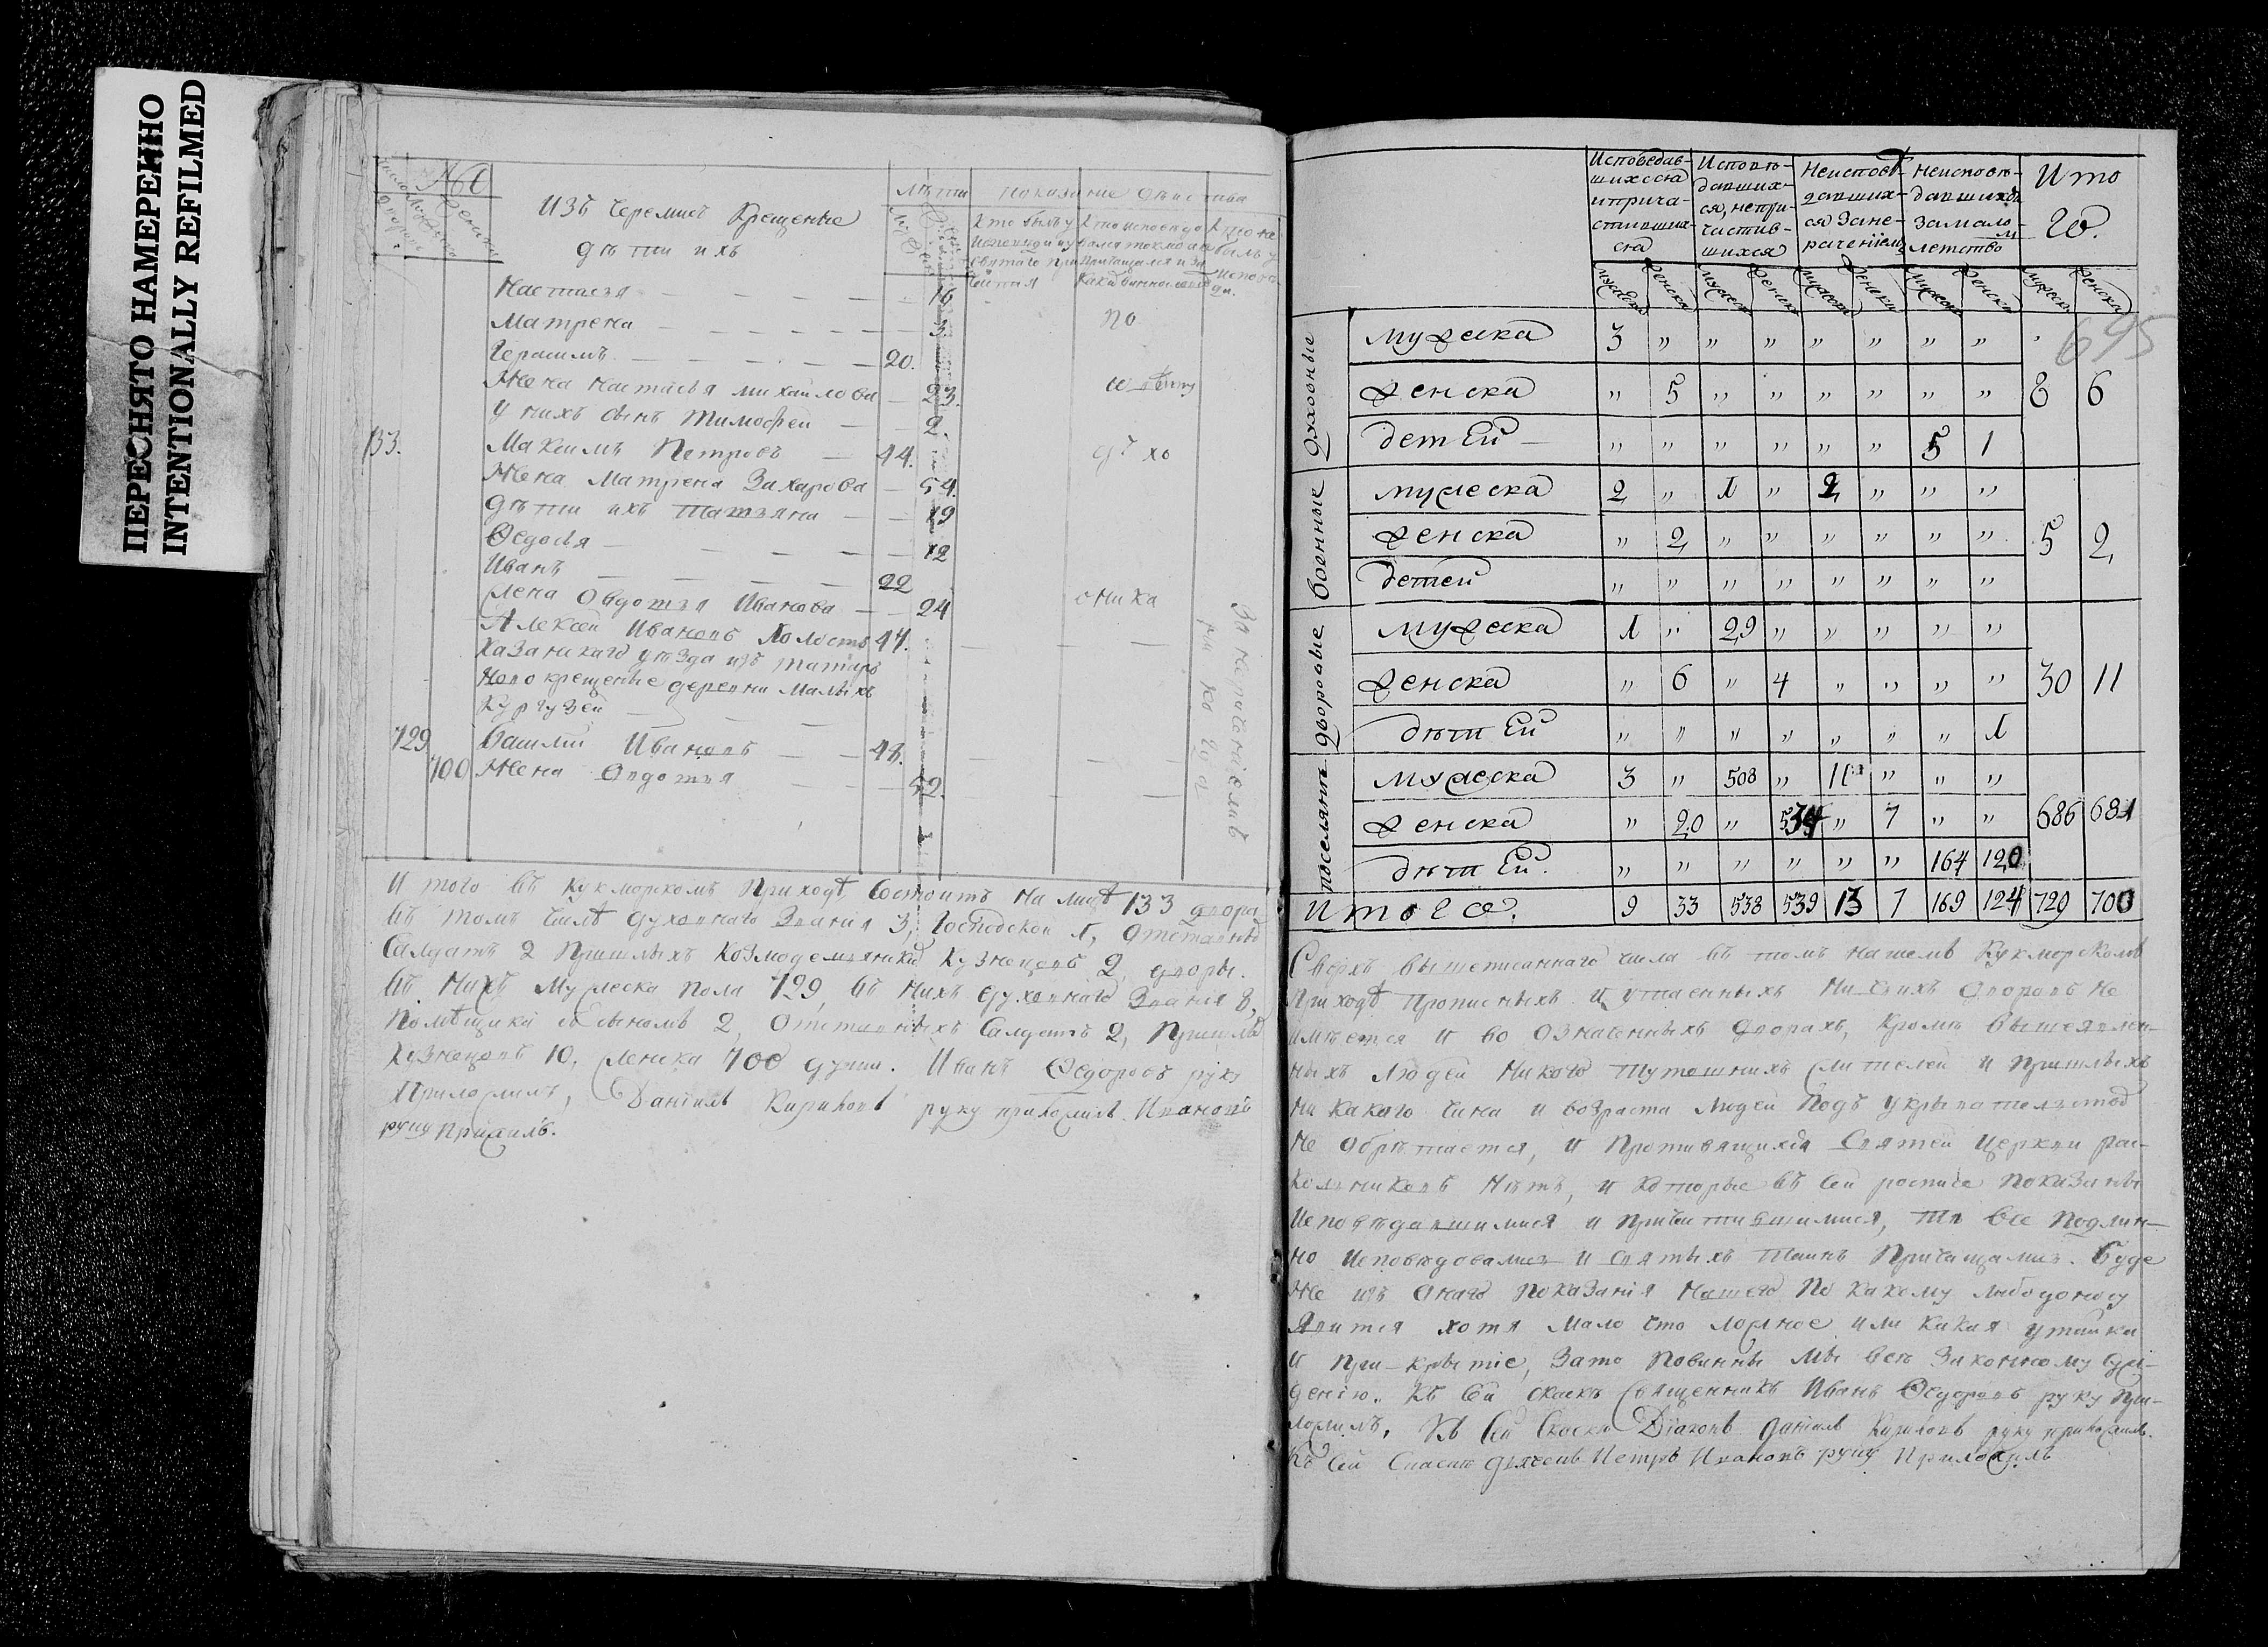 ПЕРЕСНЯТО НАМЕРЕННО
INTENTIONALLY REFILMED
Изъ черемисъ крещеные
дѣти ихъ
Лѣта
Показание действа
Настасья 16
Матрена 3
по
Герасимъ 20.
Жена Настасья михаилова 23.
У нихъ сынъ Тимофеи 2.
133. Максимъ Петровъ 44.
Жена Матрена Захарова 54.
дѣти ихъ Татьяна 19
Ѳедосья 12
Иванъ 22
Жена Овдотья Иванова 24
Алексеи Ивановъ Холостъ 47.
Казанскаго уѣзда изъ татаръ
Новокрещеные деревни Малыхъ
Кургузеи
729 Василии Ивановъ 48.
700 Жена Овдотья 52.
За неречениемъ
Итого въ Кукморскомъ Приходѣ Состоитъ На лицѣ 133 двора
Въ томъ числѣ духовнаго Званія 3, Господской 1, Отставныхъ
Салдатъ 2 Пришлыхъ Козмодемьянских Кузнецовъ 2, дворы.
Въ Нихъ Мужеска пола 729, въ нихъ духовнаго Званія 8,
Помѣщика съ сыномъ 2, Отставныхъ Салдатъ 2, Пришлых
Кузнецовъ 10, женска 700 души. Иванъ Ѳедоровъ руку
Приложилъ, Даніилъ Кириловъ руку приложилъ Ивановъ
руку Приложилъ.
Исповедав-
шихсся
и прича-
стивших-
ся
Исповѣ-
давших-
ся, непри-
частив-
шихся
Неиспове-
давших-
ся Зане-
рачениемъ
Неисповѣ-
давшихся
Замало-
летство
Ито
го.
мужеска женска мужеска женска мужеска женска мужеска женска мужеска женска
695
Духовные
мужеска 3 " " " " " " "
женска " 5 " " " " " " 8 6
детей " " " " " " 5 1
Военные
мужеска 2 " 1 " 2 " " "
женска " 2 " " " " " " 5 2
детей " " " " " " " "
дворовые
мужеска 1 " 29 " " " " "
женска " 6 " 4 " " " " 30 11
дѣтей " " " " " " " 1
поселянъ
мужеска 3 " 508 " 11 " " "
женска " 20 " 534 " 7 " " 686 681
дѣтей. " " " " " " 164 120
Итого. 9 33 538 539 13 7 169 124 729 700
Сверхъ вышеписаннаго числа въ томъ нашемъ Кукморскомъ
Приходѣ Прописныхъ и утаенныхъ Никакихъ дворовъ не
имѣется и во означенныхъ дворахъ, Кромѣ вышеявлен-
ныхъ Людей Никого Тутошнихъ жителей и Пришлыхъ
Никакого чина и возраста людей Подъ укрывательством
Не обрѣтается, и Противящихся Святей Церкви рас-
кольниковъ Нѣтъ, и Которые въ Сей росписе Показаны
Исповѣдавшимися и Причастившимися, Тѣ все Подлин-
но Исповѣдовались и Святыхъ Таинъ Причащались. Буде
же изъ Онаго показанія Нашего По какому либо доносу
Явится хотя Мало что ложное или Какая утайка
и При-крытіе, Зато Повинны мы Всѣ Законному Суж-
денію. Къ Сей скаскѣ Священникъ Иванъ Ѳедоровъ руку При-
ложилъ, Къ Сей Скаски Діаконъ Даніилъ Кириловъ руку приложилъ.
Къ Сей Скаски Дьячекъ Петръ Ивановъ руку Приложилъ